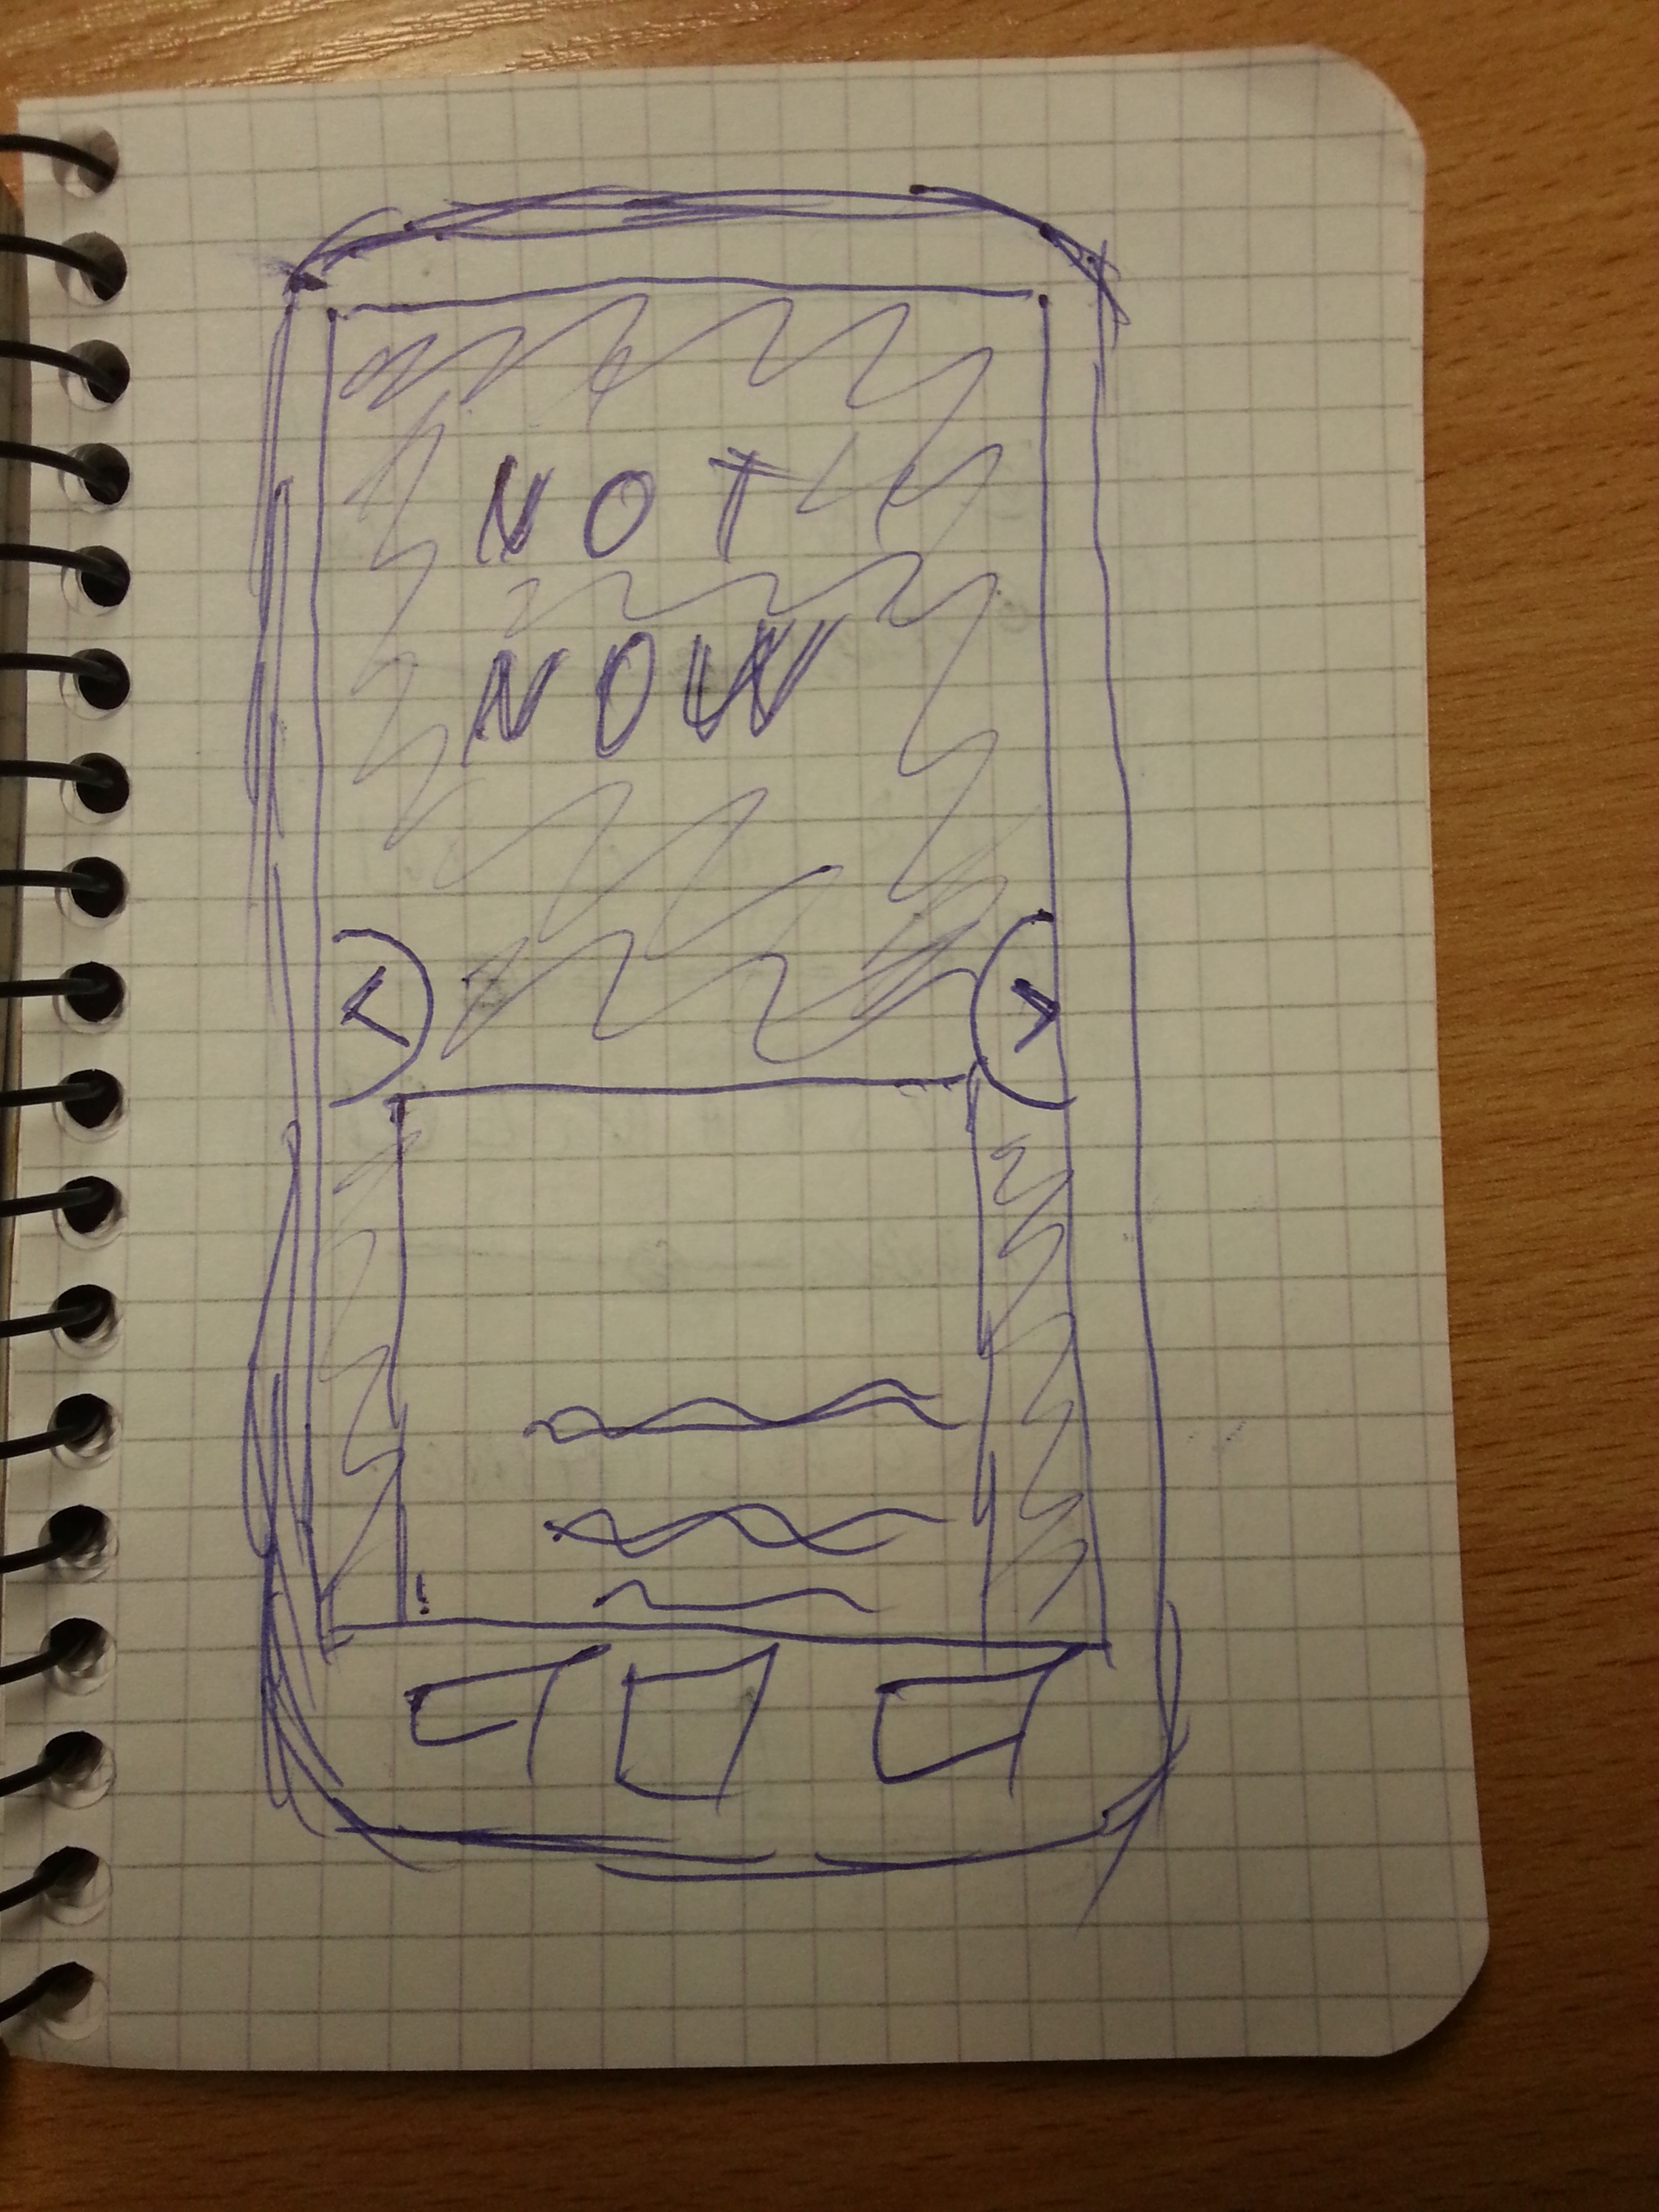 NOT
NOW
< >